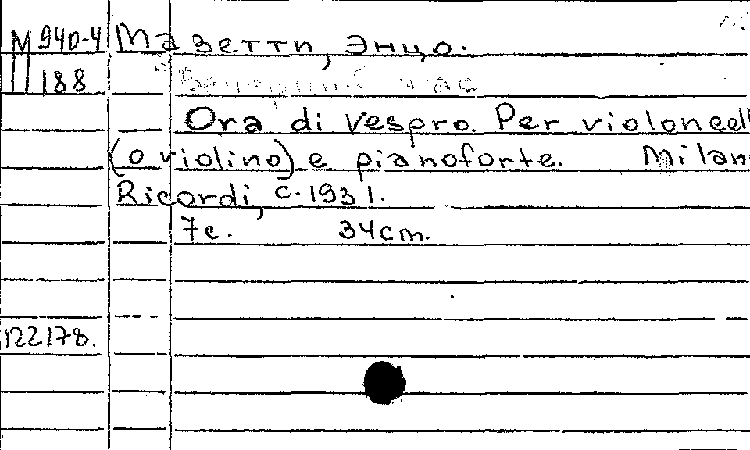 М 940-4 Мазетти, Энцо.
П 188 Вечерний час
Ora di vespro. Per violoncell
(o violino) e pianoforte. Milan
Ricordi, c. 1931.
7c. 34cm.
122178.